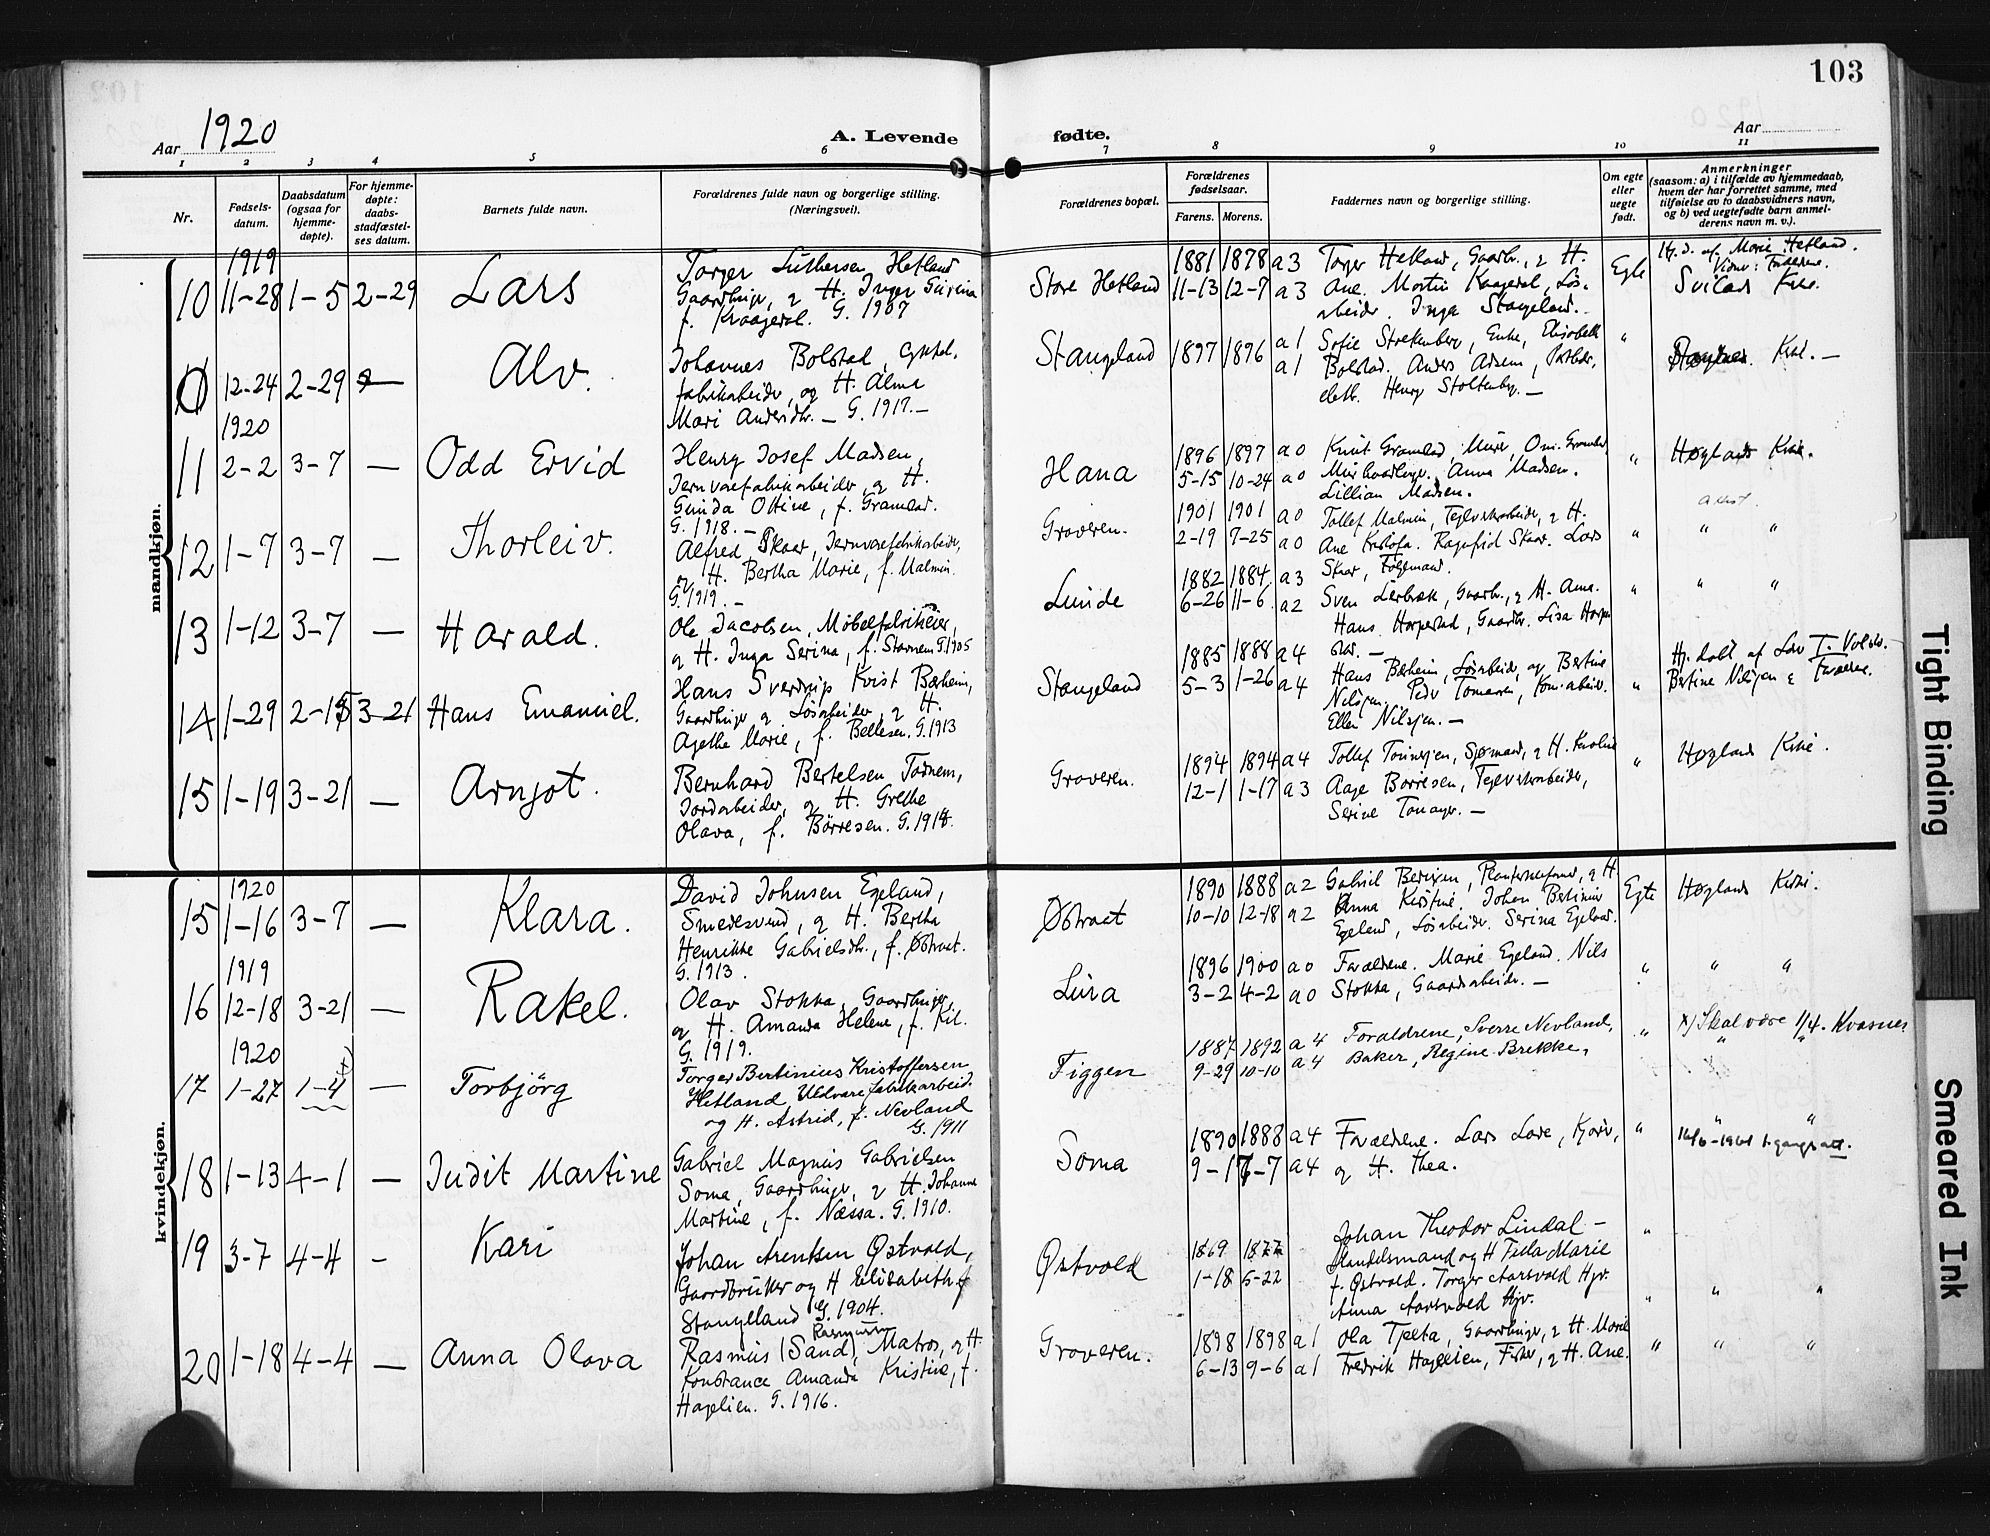 103
Aar 1920
A. Levende fødte.
Aar
1 2 3 4 5 6 7 8 9 10 11
Nr.
Fødsels-
datum.
Daabsdatum
(ogsaa for
hjemme-
døpte).
For hjemme-
døpte:
daabs-
stadfæstel-
ses datum.
Barnets fulde navn.
Forældrenes fulde navn og borgerlige stilling.
(Næringsvei).
Forældrenes bopæl.
Forældrenes
fødselsaar.
Farens. Morens.
Faddernes navn og borgerlige stilling.
Om egte
eller
uegte
født.
Anmerkninger
(saasom: a) i tilfælde av hjemmedaab,
hvem der har forrettet samme, med
tilføielse av to daabsvidners navn,
og b) ved uegtefødte barn anmel-
derens navn m. v.).
mandkjøn.
1919
10 11-28 1-5 2-29 Lars
Torger Huthersen Hetland
Gaardbruger, og H. Inger Gurina
f. Kraagedal. G. 1907
Store Hetland
1881 1878 a 3
11-13 12-7 a 3
Torger Hetland, Gaardbr., og H.
Ane. Martin Kraagedal, Løs-
arbeider. Inga Stangeland.
Egte
Hj. d. af Marie Hetland.
0 12-24 2-29 — Alv.
Johannes Bolstad, Cykkel-
fabrikarbeider, og H. Alma
Mari Andersdtr. — G. 1917.—
Stangeland 1897 1896 a 1
a 1
Bolstad. Anders
Henry Stoltenbg. —
" Kirke. —
1920
11 2-2 3-7 — Odd Ervid
Henry Josef Madsen,
Jernvarefabrikarbeider, og H.
Gunda Otine, f. Gramstad.
G. 1918. —
Hana
1896 1897 a 0
5-15 10-24 a 0
Knut Gramstad, Murer,
Anna Madsen.
Lillian Madsen.
" Høylands Kirke.
12 1-7 3-7 — Thorleiv.
Alfred Skaar, Jernvarefabrikarbeider,
og H. Bertha Marie, f. Malmin.
G. 1919. —
Graveren.
1901 1901 a 0
2-19 7-25 a 0
Tollef Malmin, Teglverksarbeider, og H.
Ane Kristofa. Ragnfrid Skaar. Lars
Skaar,
" " "
13 1-12 3-7 — Harald.
Ole Jacobsen, Møbelfabrikeier,
og H. Inga Serina, f. Stavnem G. 1905
Lunde
1882 1884 a 3
6-26 11-6 a 2
Sven Lerbræk, Gaardbr., og H. Ane.
Hans Horpestad, Gaardbr. Lisa Horpe
stad. —
" " "
14 1-29 2-15 3-21 Hans Emanuel.
Hans Sverdrup Kvist Bærheim,
Gaardbruger og Løsarbeider, og H.
Agethe Marie, f. Bellesen. G. 1913
Stangeland
1885 1888 a 4
5-3 1-26 a 4
Hans Bærheim, Løsarbeider, og Bertine
Nilsen. Peder
Ellen Nilsen. —
"
Bertine Nilsen & Forældrene.
15 1-19 3-21 — Arngot.
Bernhard Bertelsen Tornem,
Jordarbeider, og H. Grethe
Olava, f. Børresen. G. 1918.
Graveren.
1894 1894 a 4
12-1 1-17 a 3
Tollef Tønnesen, Sjømand, og H. Karoline
Aage Børresen, Teglverksarbeider,
Serine
" Høylands Kirke.
kvindekjøn.
1920
15 1-16 3-7 — Klara.
David Johnsen Egeland,
Smedesvend, og H. Bertha
Henrikke Gabrielsdtr., f. Østraat.
G. 1913.
Østraat
1890 1888 a 2
10-10 12-18 a 2
Gabriel Bertinsen, og H.
Anna Kirstine. Johan Bertinius
Egeland, Løsarbeider. Serina Egeland.
Egte Høylands Kirke.
1919
16 12-18 3-21 — Rakel.
Olav Stokka, Gaardbruger,
og H. Amanda Helene, f. Kil.
G. 1919.
Lura
1896 1900 a 0
3-2 4-2 a 0
Forældrene. Marie Egeland. Nils
Stokka, Gaardsarbeider. —
" " "
1920
17 1-27 1-4 x) — Torbjörg
Torger Bertinius Kristoffersen
Hetland Uldvarefabrikarbeid.
og H. Astrid, f. Nevland
G. 1911
Figgen
1887 1892 a 4
9-29 10-10 a 4
Foraldrene, Sverre Nevland,
Baker, Regine Brekke,
" x) Skal være 1/4. Kvasnes
18 1-13 4-1 — Judit Martine
Gabriel Magnus Gabrielsen
Soma, Gaardbruger, og H. Johanne
Martine, f. Næssa. G. 1910.
Soma
1890 1888 a 4
9-17 6-7 a 4
Forældrene. Lars Lode, Kjører,
og H. Thea.
" " "
19 3-7 4-4 — Kari
Johan Arentsen Østvold,
Gaardbruker og H Elisabeth f
Stangelland G. 1904.
Østvold
1869 1877
1-18 6-22
Johan Theodor Lindal —
Handelsmand og H Tilla Marie
f. Østvold. Torger Aarsvold Hjv.
Anna Aarsvold Hjv.
" " "
20 1-18 4-4 — Anna Olava
Rasmus (Sand) Rasmussen, Matros, og H.
Konstance Amanda Kristine, f.
Hagelien. G. 1916.
Graveren.
1898 1898 a 1
6-13 9-6 a 1
Ola Tjelta, Gaardbruger, og H. Marie
Fredrik Hagelien, Fisker, og H. Ane.
" " "
Tight Binding
Smeared Ink